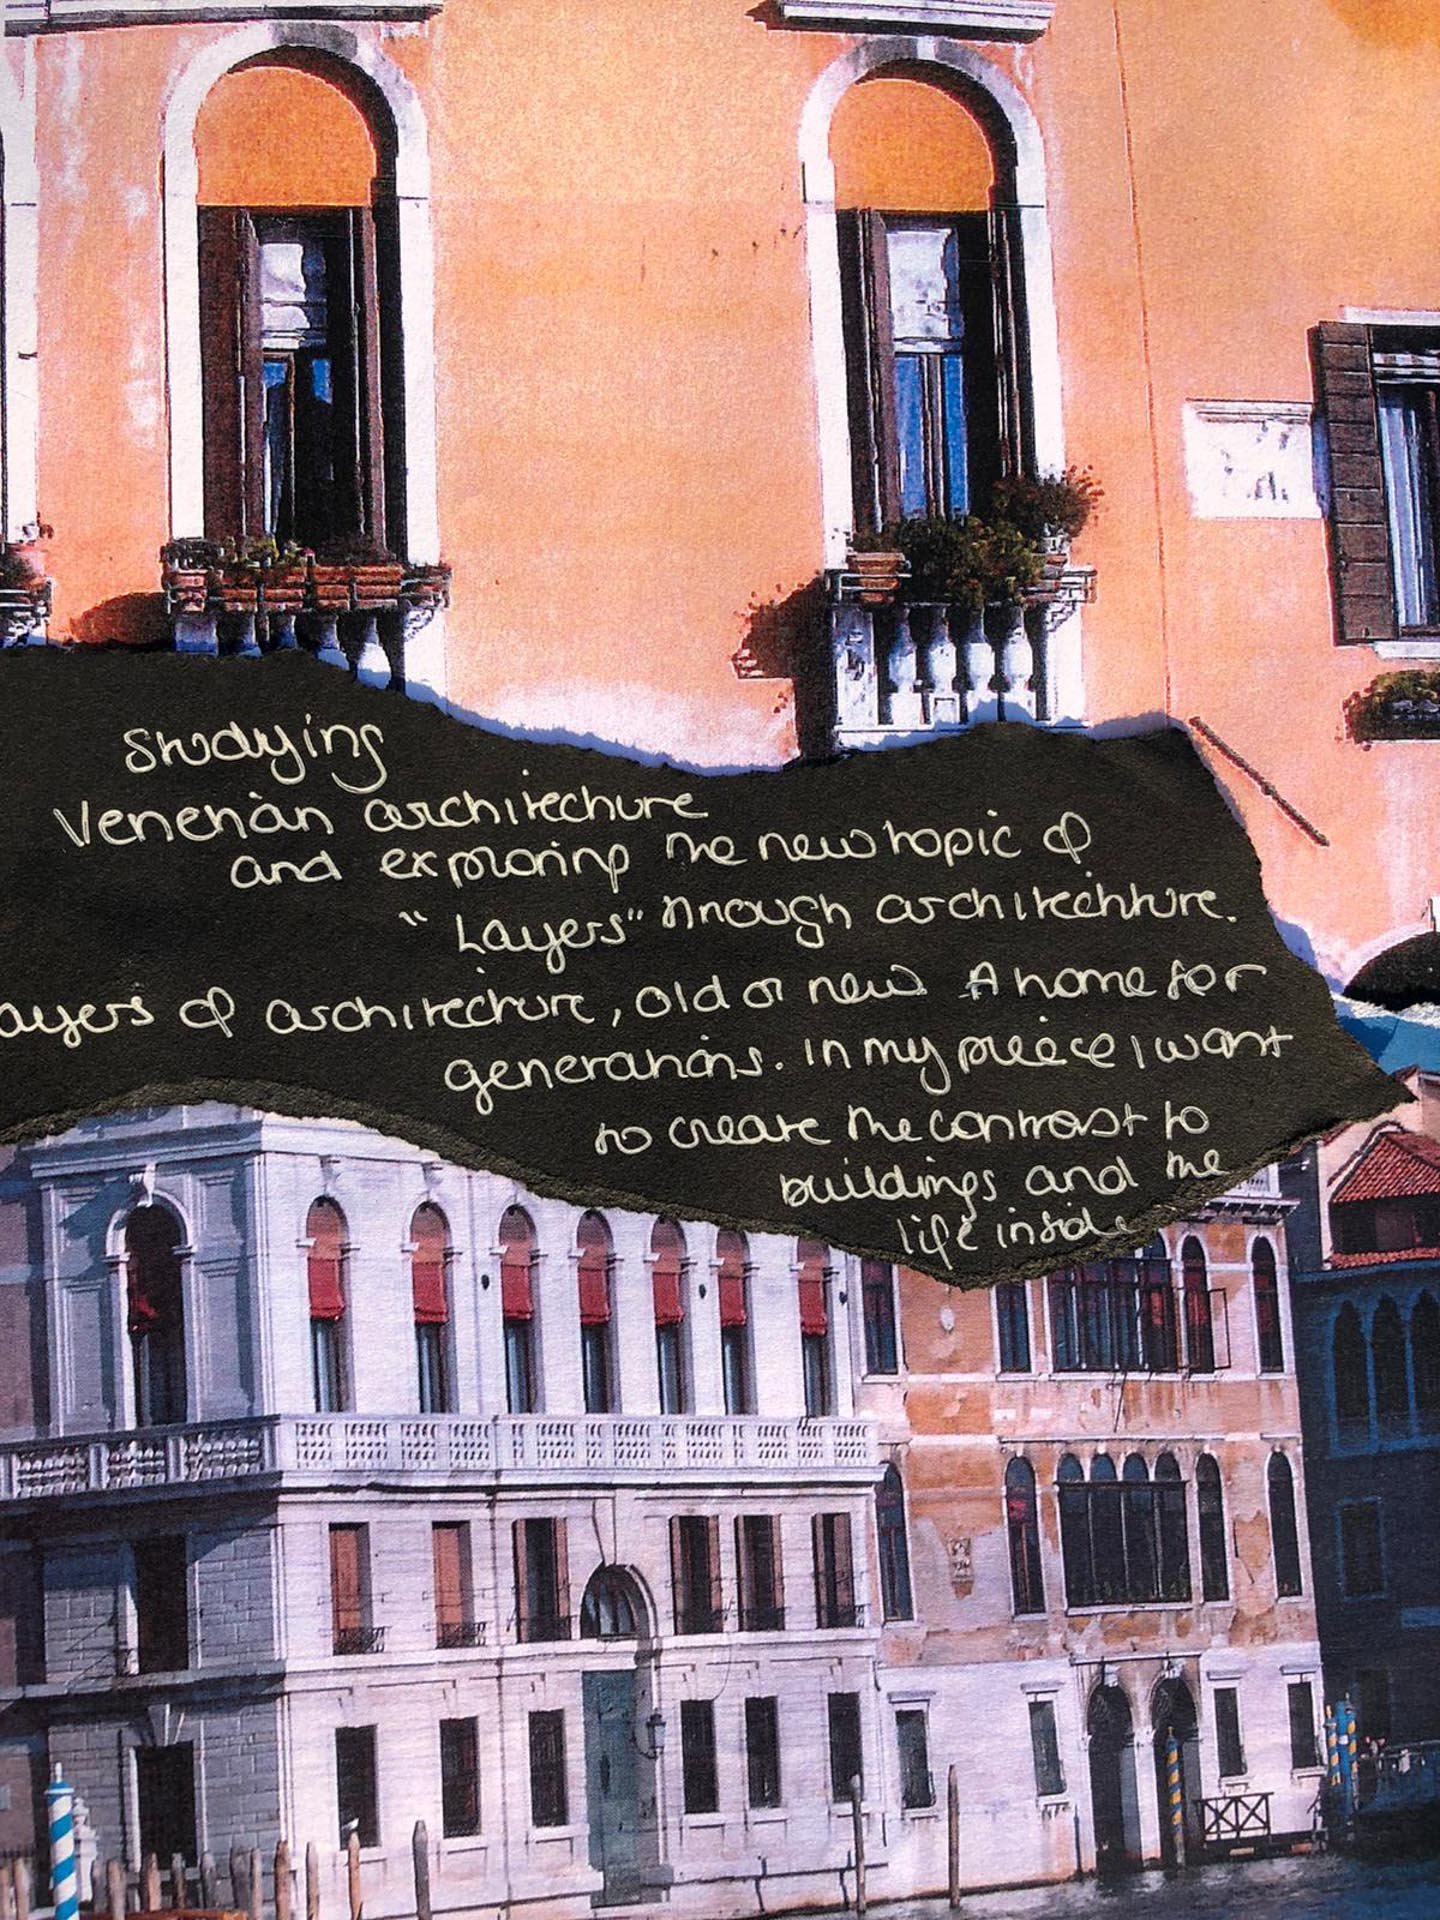 Studying
Venetian architecture
and exploring the new topic of
"Layers" through architechture.
ayers of architecture, old or new. A home for
generations. In my pieece I want
to create the contrast to
buildings and the
life inside